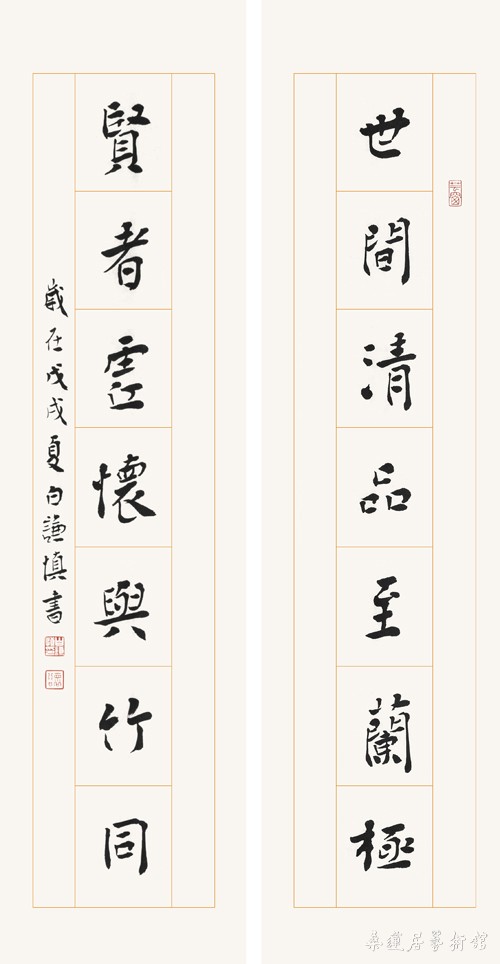 世間清品至蘭極
賢者虛懷與竹同
歲在戊戌夏白謙慎書
桑蓮居藝術館